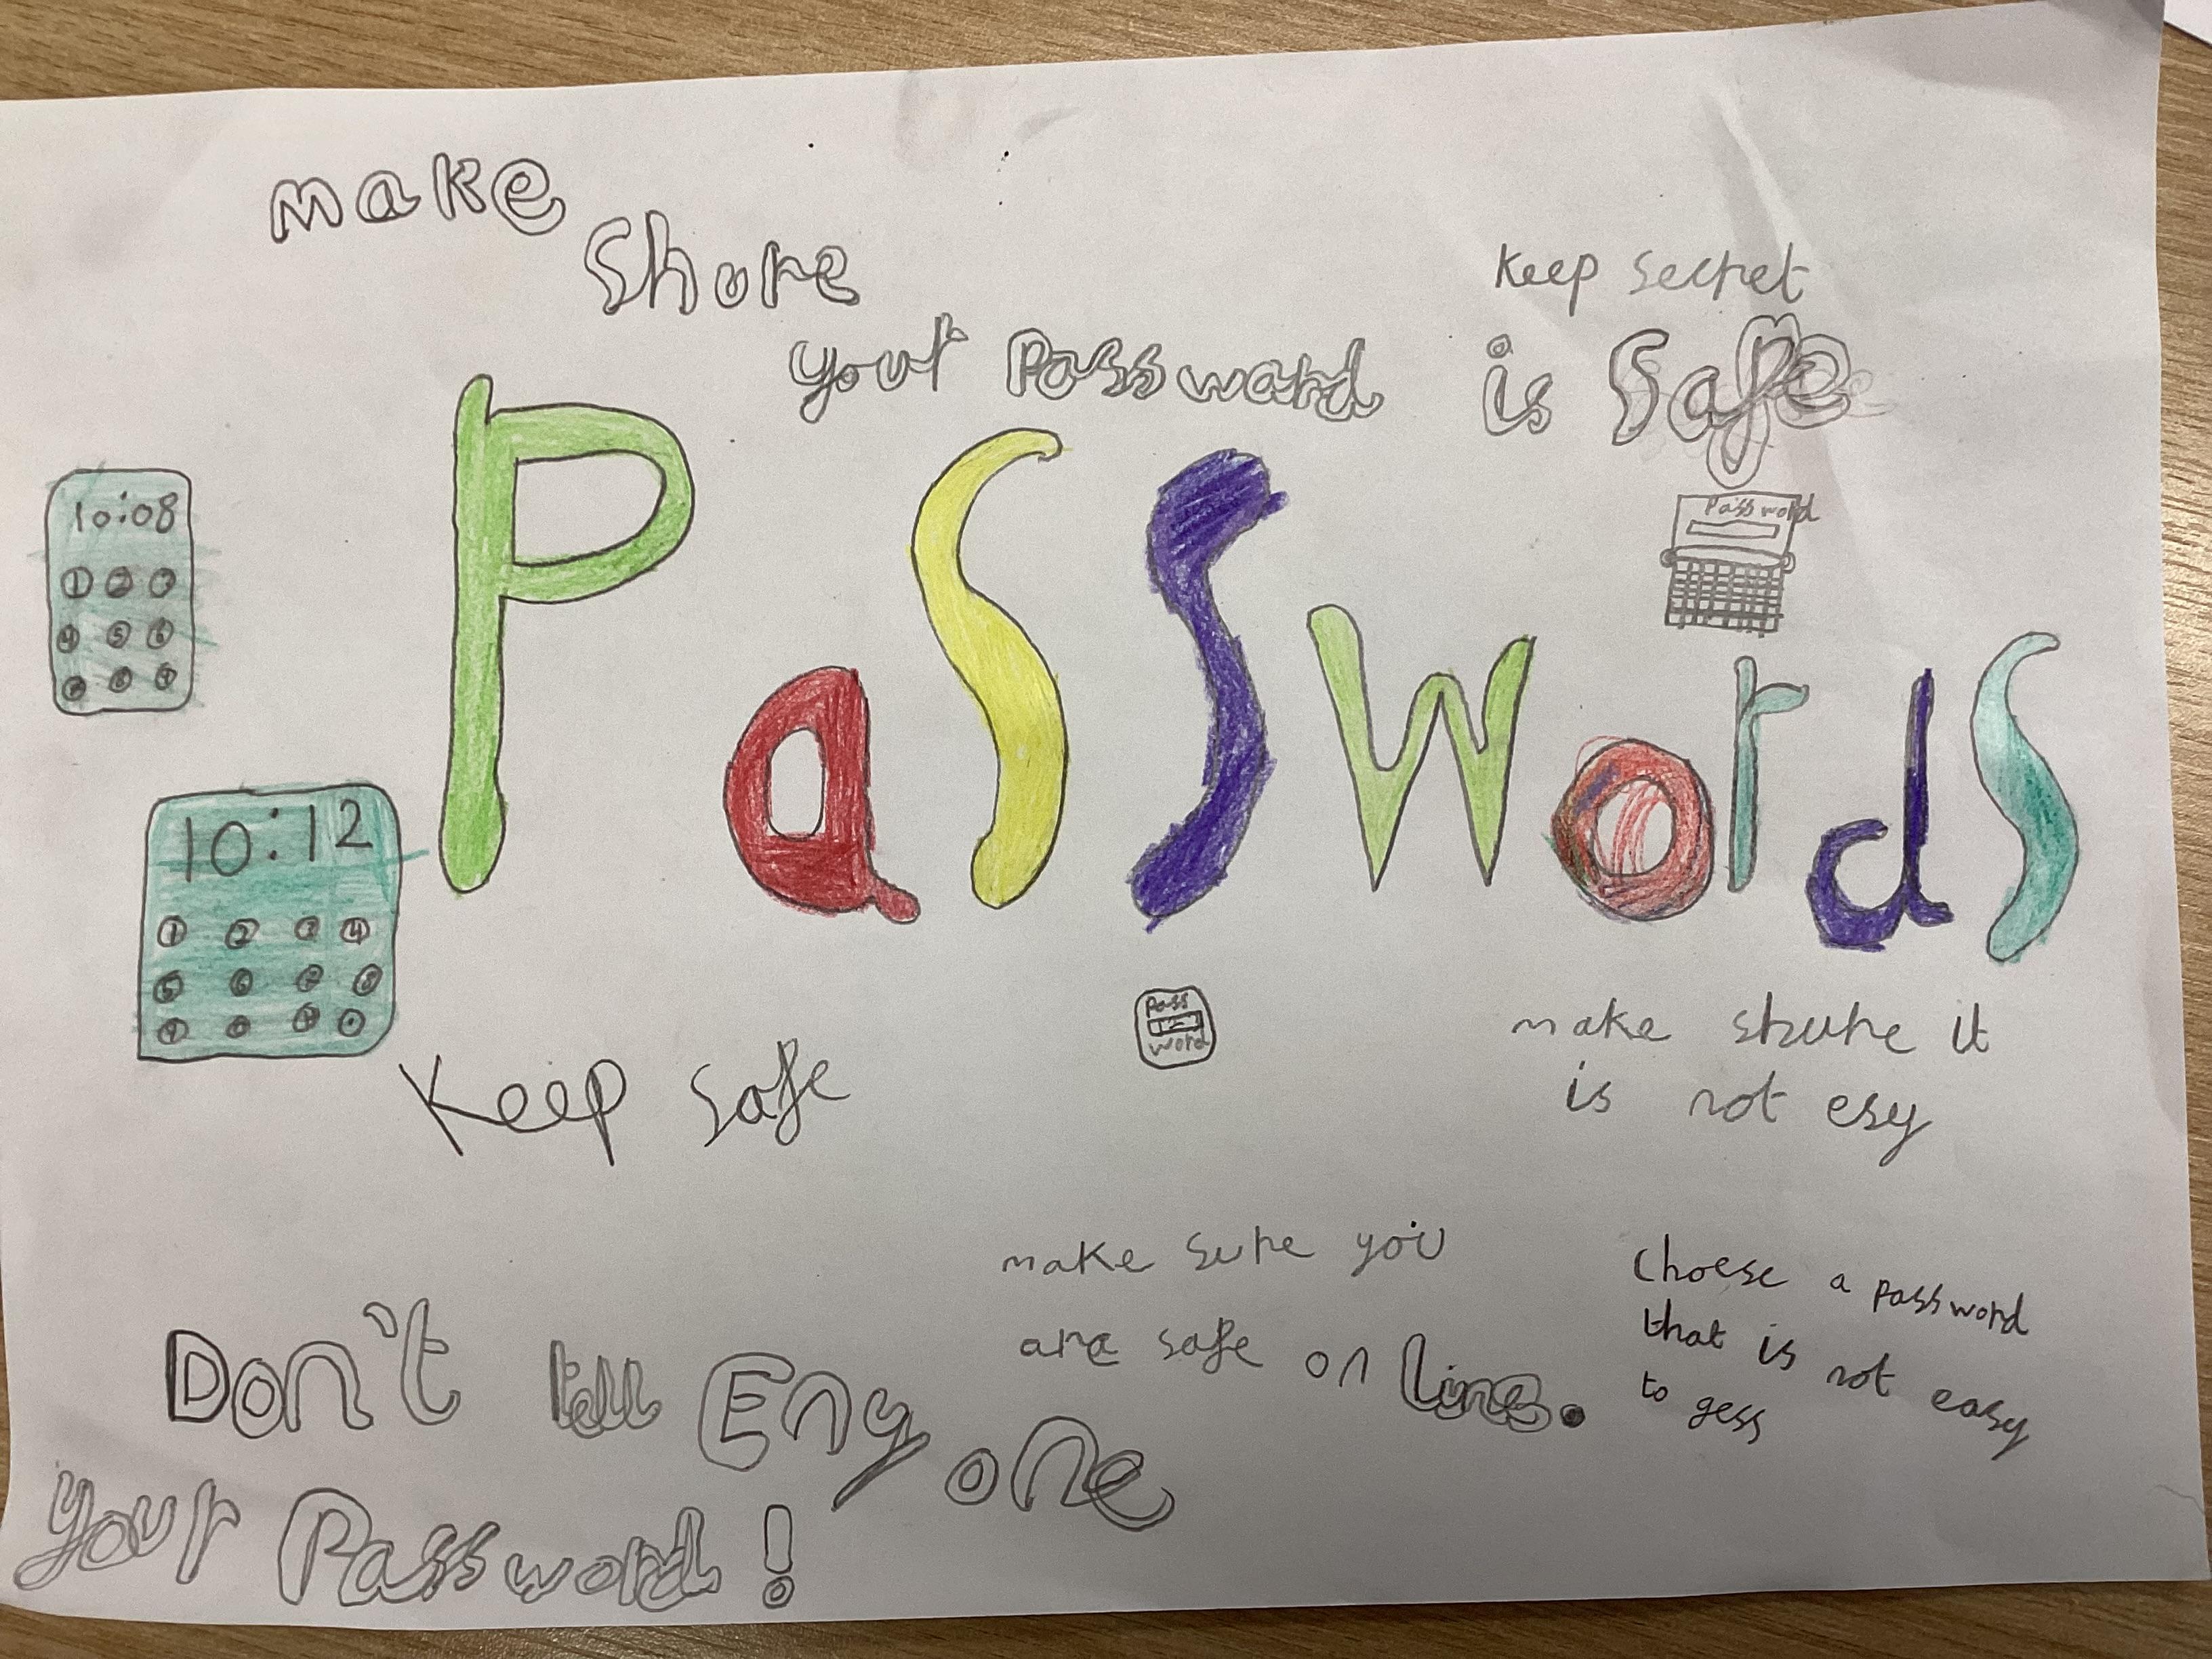 make
Shure
your Password is Safe
keep secret
Password
PassWords
10:08
1 2 3
4 5 6
10:12
1 2 3 4
5 6 7 8
Pass
12
word
Keep safe
make shure it
is not esy
make sure you
are safe on line.
Choese a password
that is not easy
to gess
Don't tell Eny one
your Password!